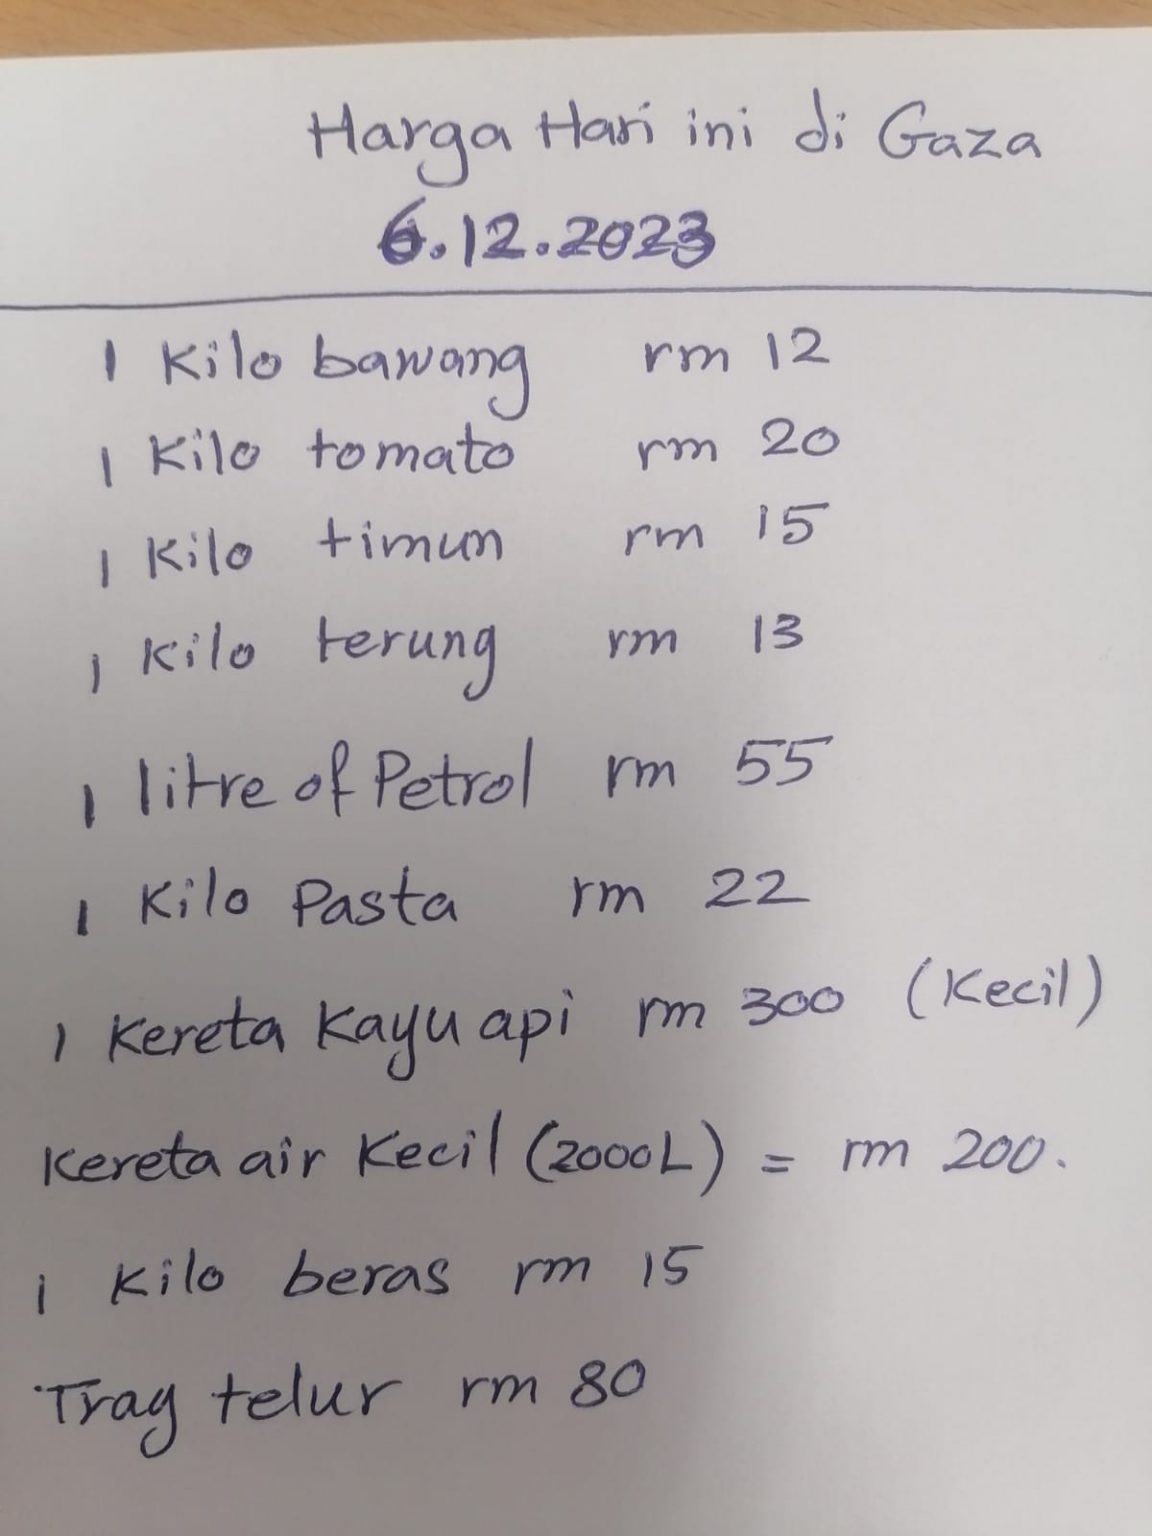 Harga Hari ini di Gaza
6.12.2023
1 Kilo bawang rm 12
1 Kilo tomato rm 20
1 Kilo timun rm 15
1 Kilo terung rm 13
1 litre of Petrol rm 55
1 Kilo Pasta rm 22
1 Kereta Kayu api rm 300 (Kecil)
Kereta air Kecil (2000L) = rm 200.
1 Kilo beras rm 15
Tray telur rm 80